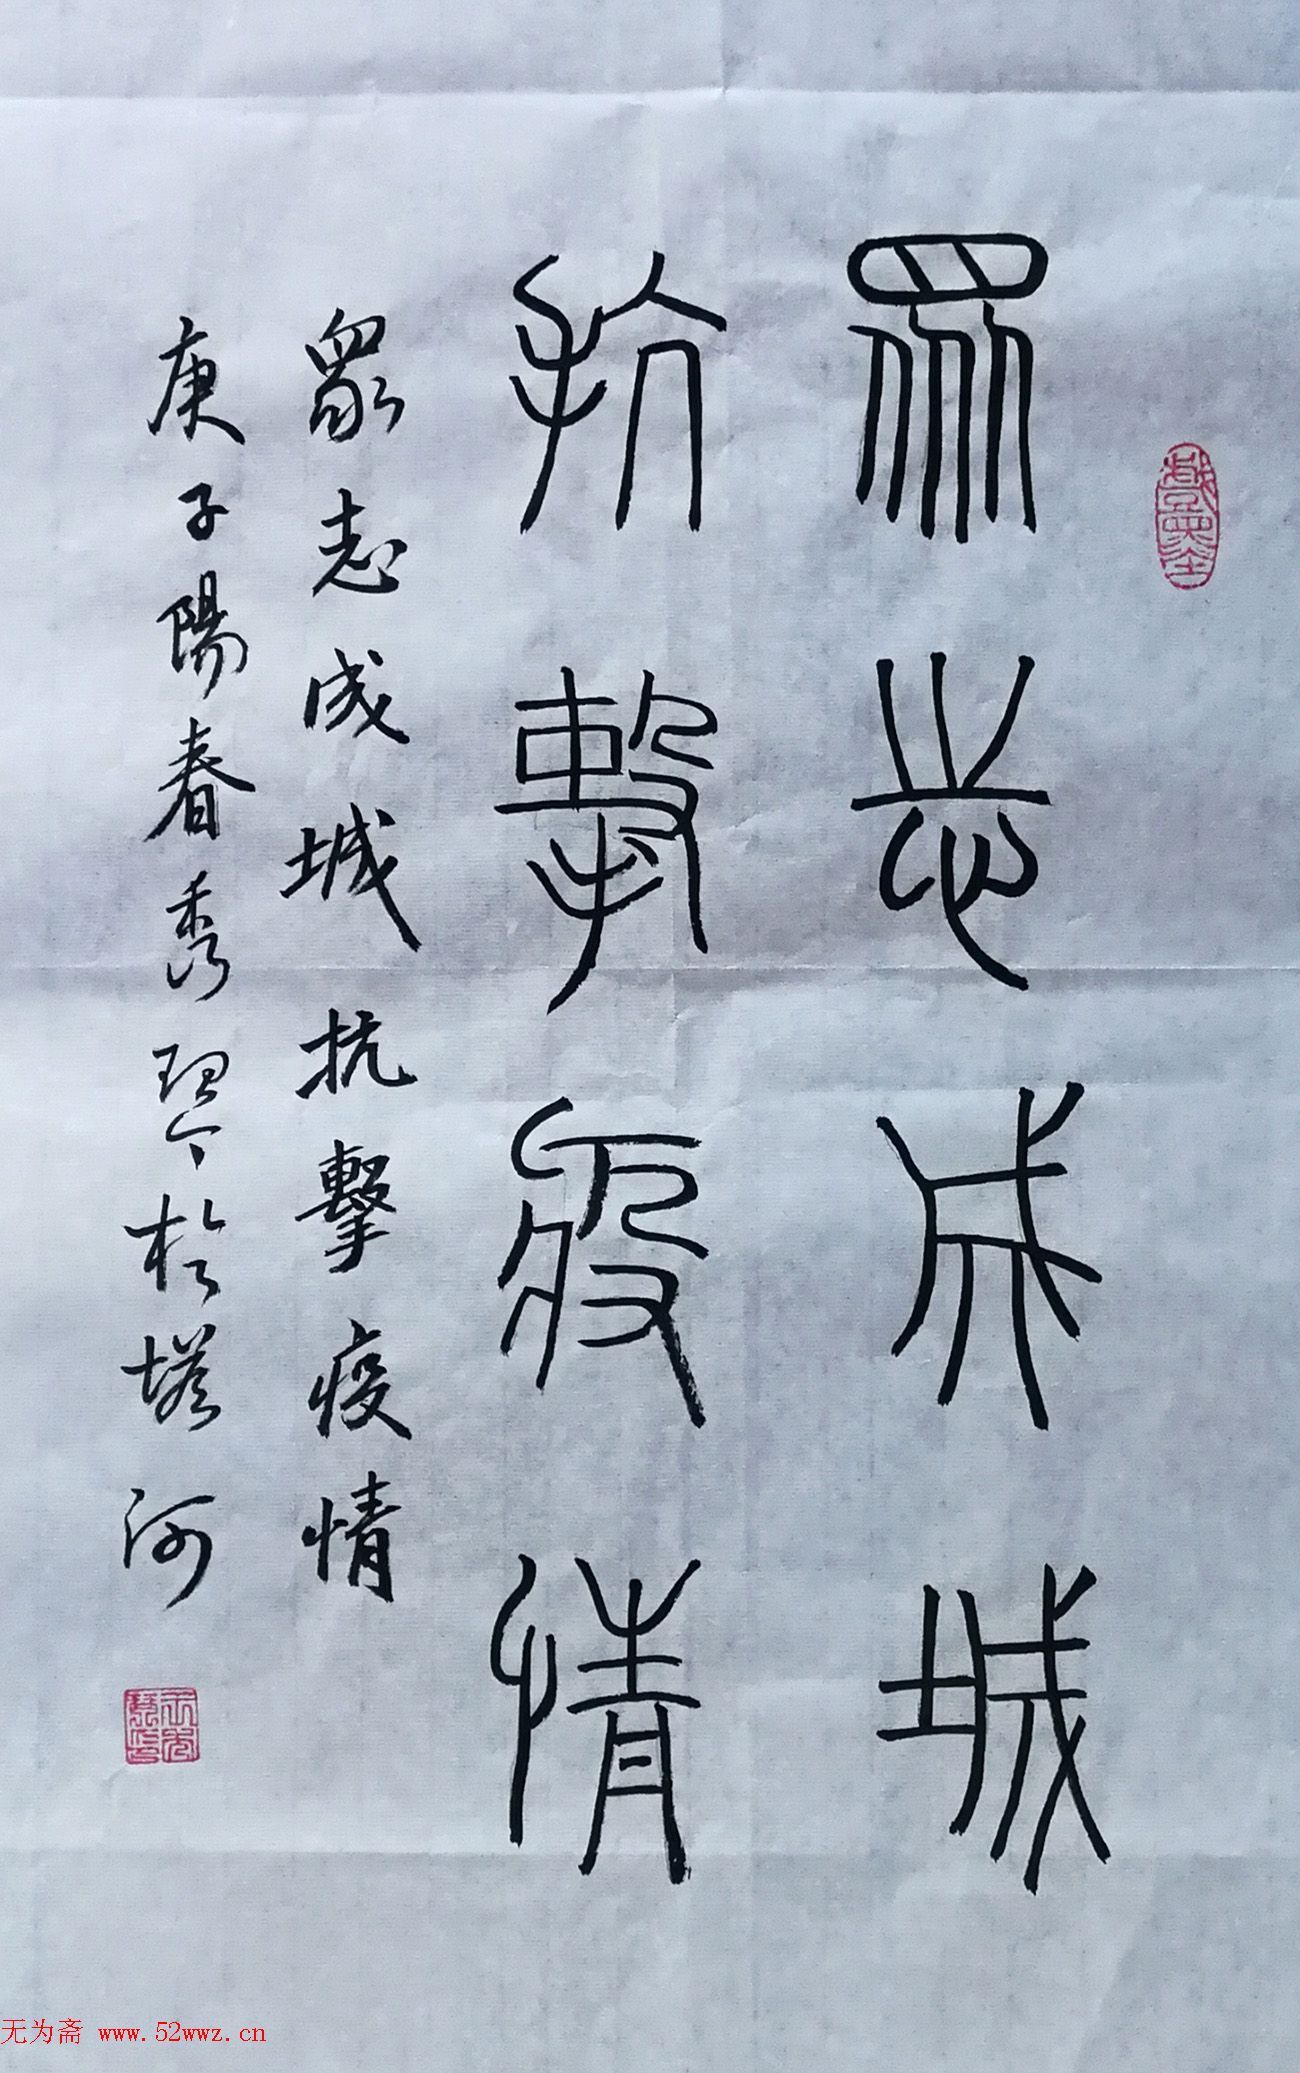 眾志成城
抗擊疫情
眾志成城抗擊疫情
庚子陽春秀琴於塔河
无为斋 www.52wwz.cn